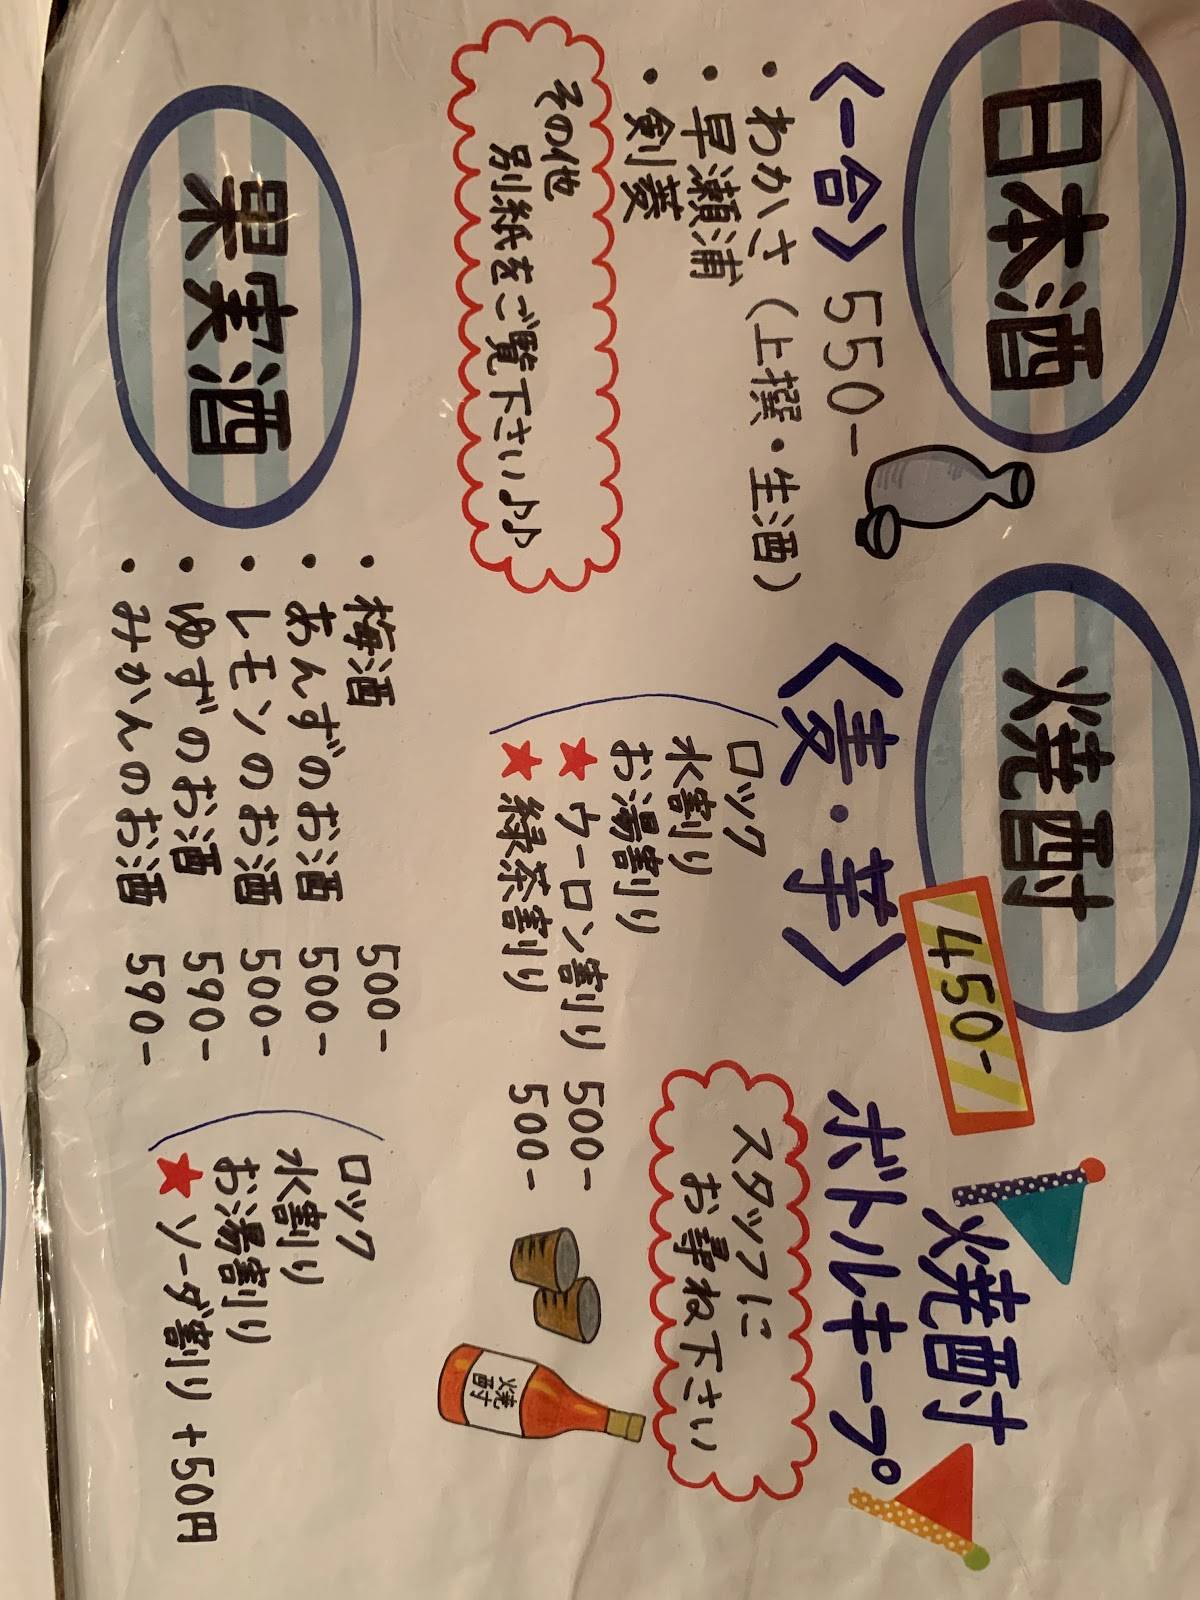 日本酒
〈一合〉 550-
・わかさ (上撰・生酒)
・早瀬浦
・剣菱
その他
別紙をご覧下さい♪♪
焼酎
450-
〈麦・芋〉
ロック
水割り
お湯割り
★ウーロン割り 500-
★緑茶割り 500-
焼酎
ボトルキープ
スタッフに
お尋ね下さい
焼酎
果実酒
・梅酒 500-
・あんずのお酒 500-
・レモンのお酒 500-
・ゆずのお酒 590-
・みかんのお酒 590-
ロック
水割り
お湯割り
★ソーダ割り +50円